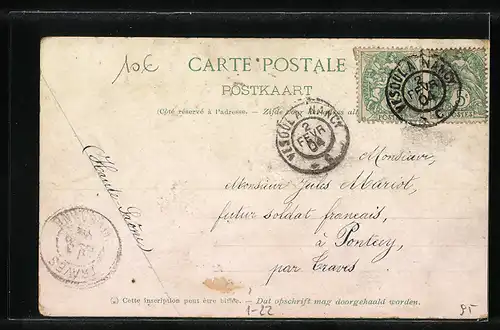 10€
CARTE POSTALE
POSTKAART
(Côté réservé à l'adresse.
VESOUL A NANCY
2
FEVR
04
VESOUL A NANCY
2
FEVR
04
POSTES
Monsieur,
Monsieur Jules Mariot,
futur soldat français,
à Pontcey,
par Traves
(Haute Saône)
TRAVES
(*) Cette inscription peut être biffée. – Dat opschrift mag doorgehaald worden.
1-22
95